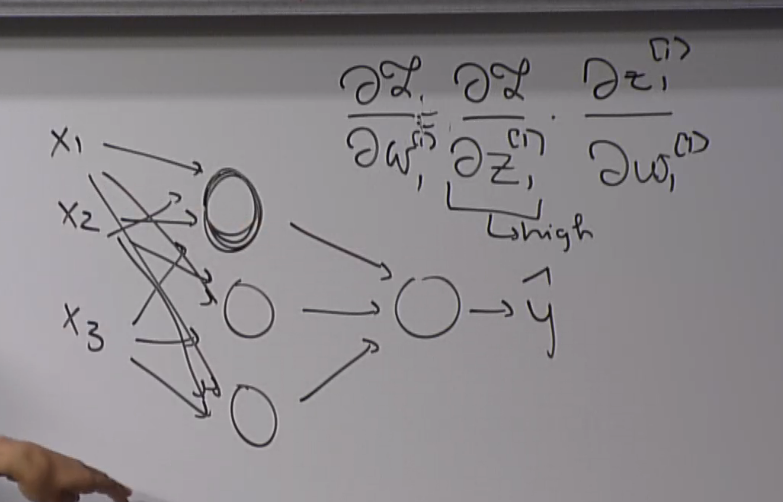 ∂ℒ/∂w₁⁽¹⁾ = ∂ℒ/∂z₁⁽¹⁾ · ∂z₁⁽¹⁾/∂w₁⁽¹⁾
↳high
x₁
x₂
x₃
ŷ